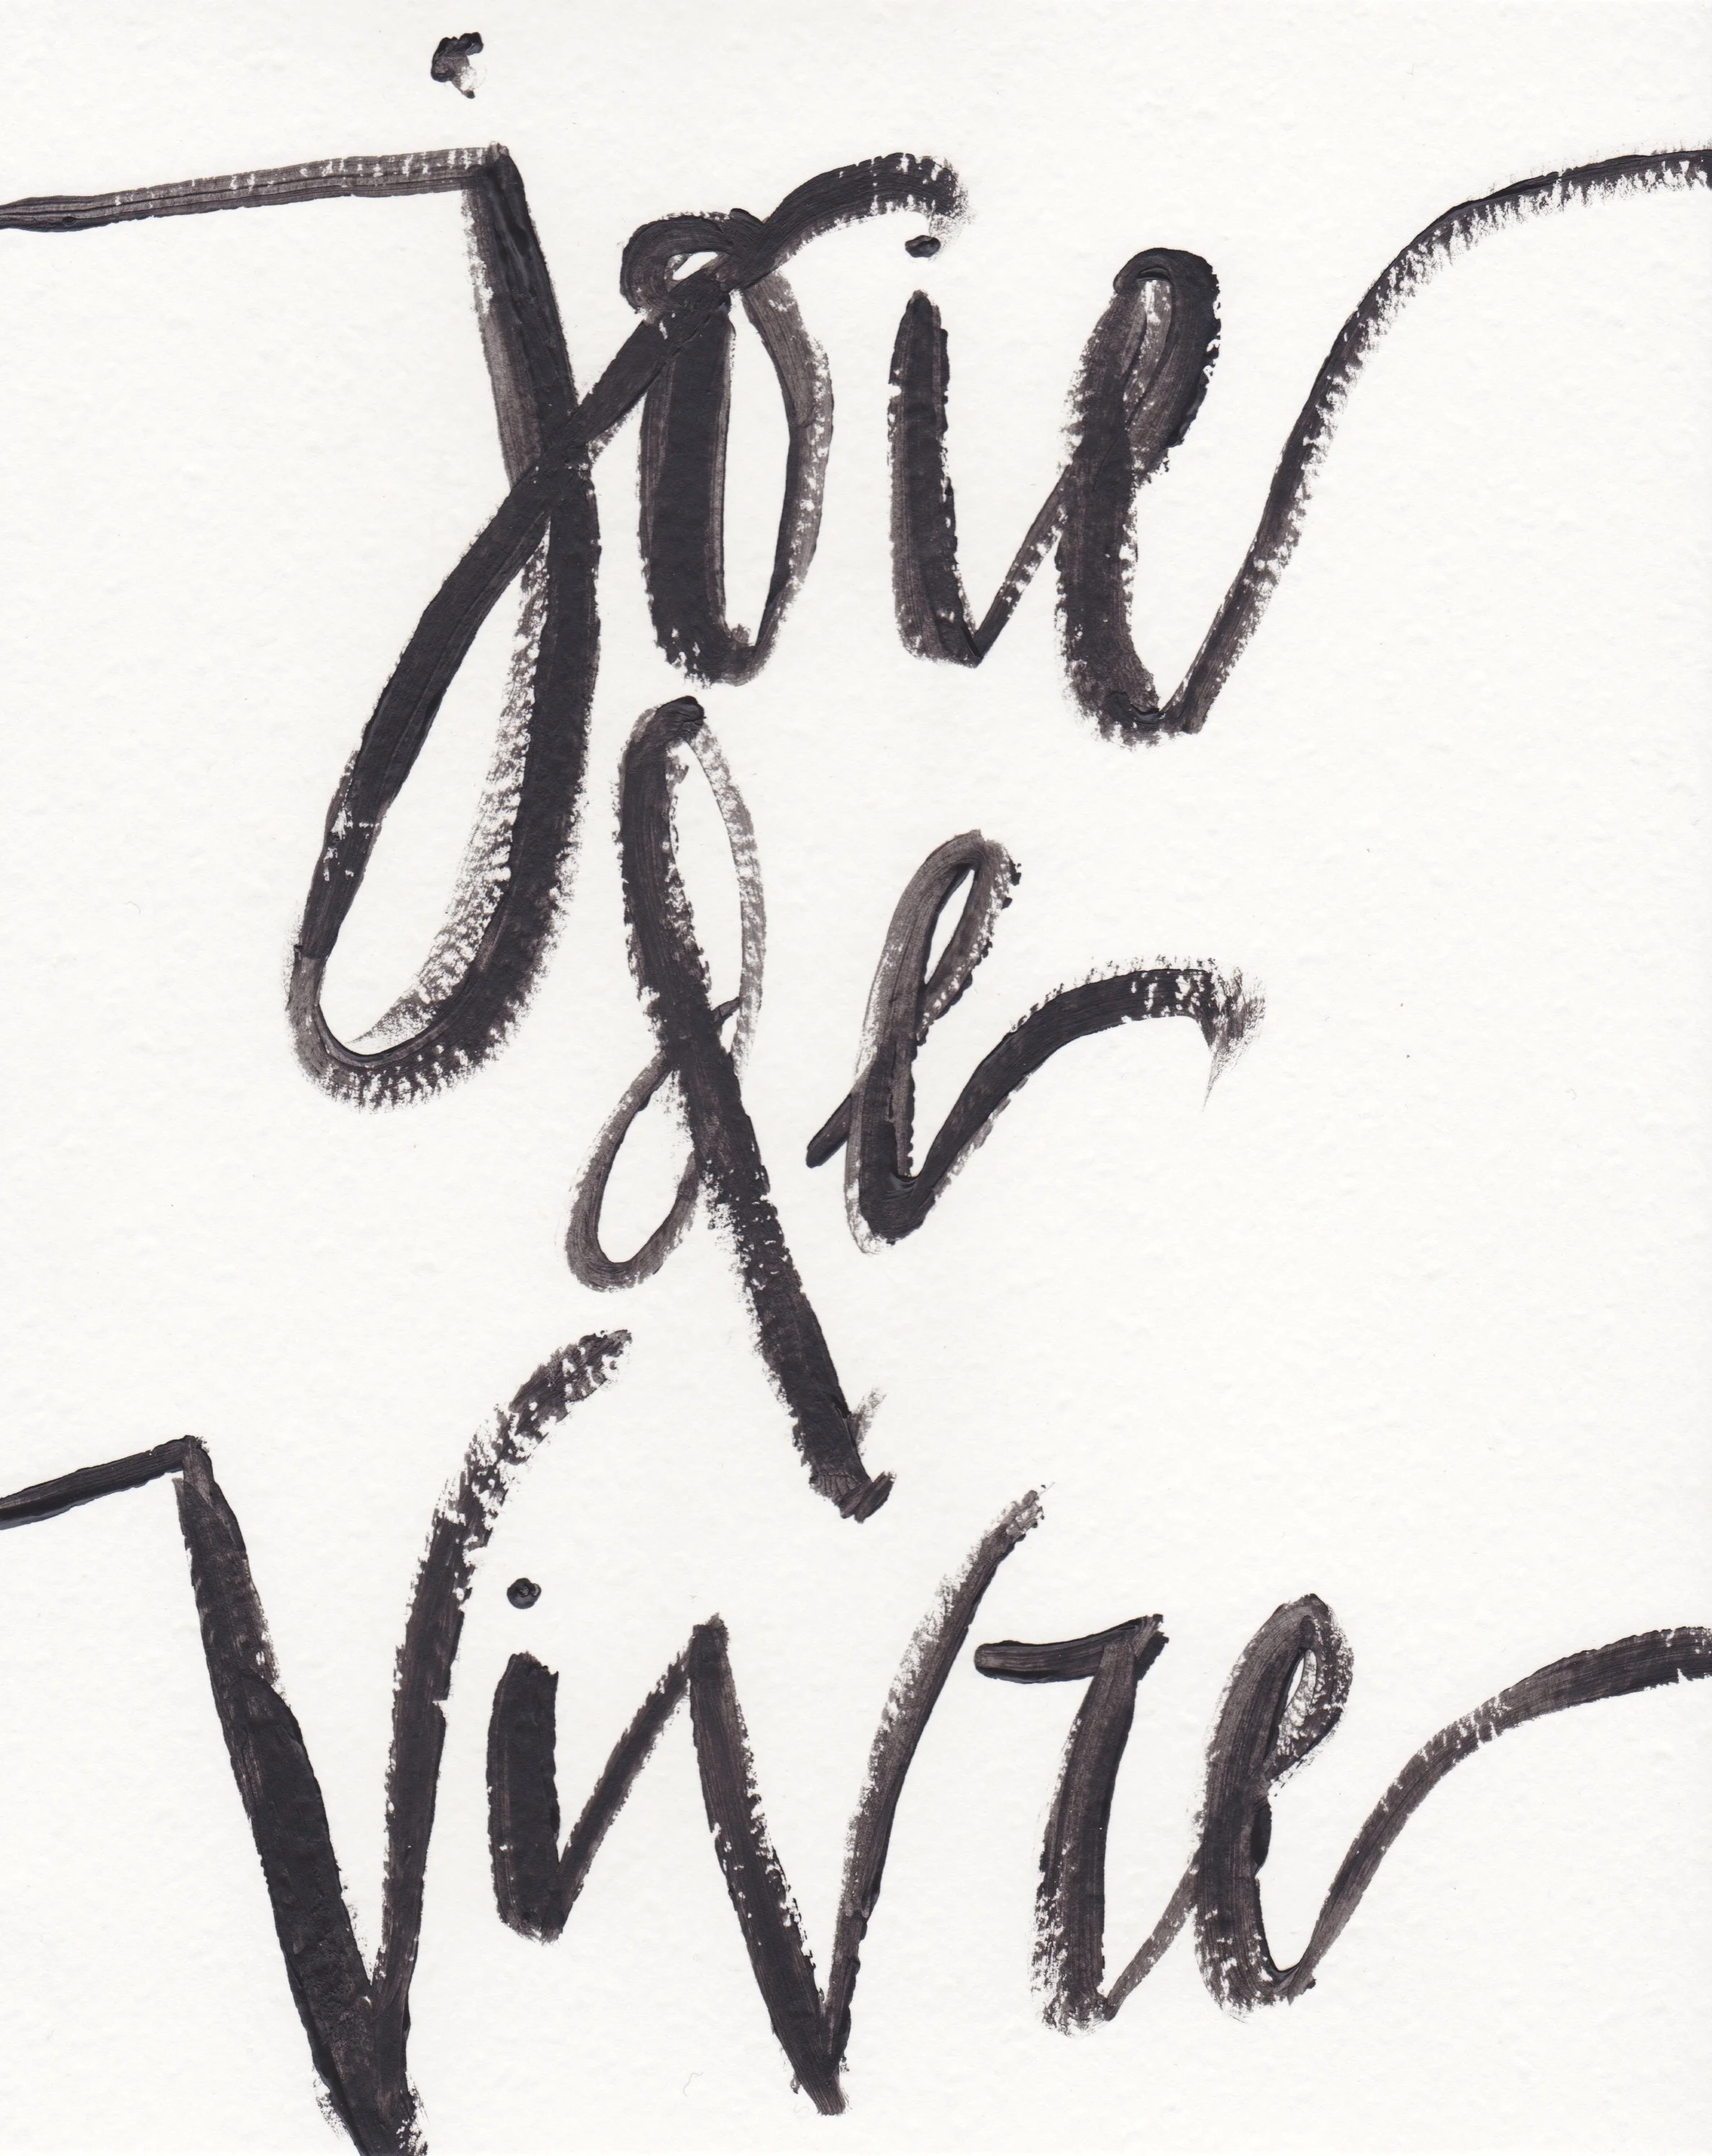 joie
de
Vivre